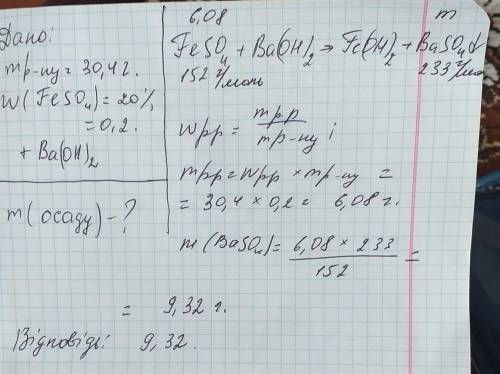 Дано:
mр-ну = 30,4 г.
W(FeSO4) = 20%
= 0,2.
+ Ba(OH)2
m(осаду) - ?
6,08 m
FeSO4 + Ba(OH)2 → Fe(OH)2 + BaSO4↓
152 г/моль 233 г/мо
Wрр = mрр / mр-ну ;
mрр = Wрр × mр-ну =
= 30,4 × 0,2 = 6,08 г.
m(BaSO4) = 6,08 × 233 / 152 =
= 9,32 г.
Відповідь: 9,32.